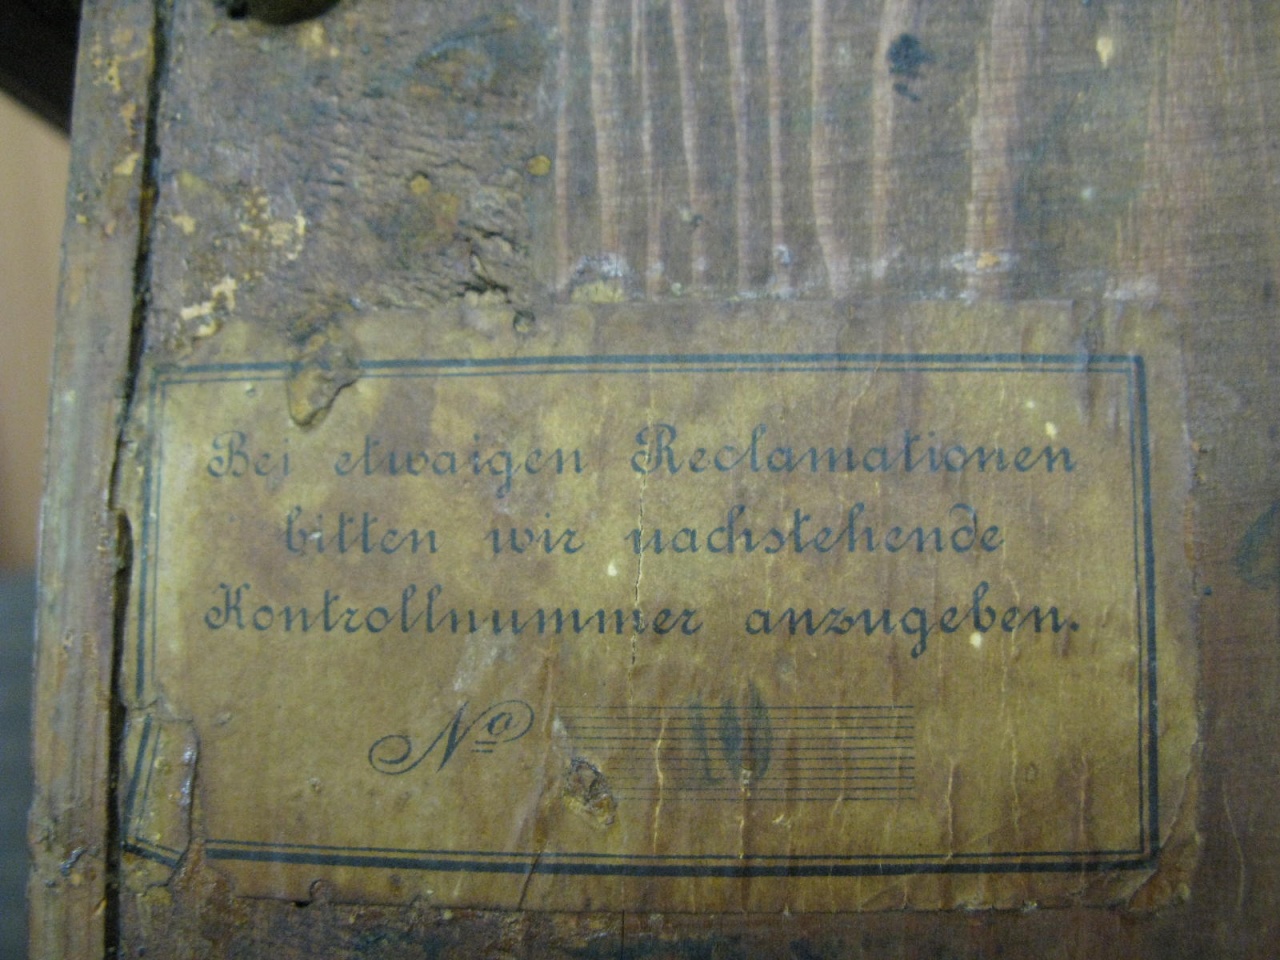 Bei etwaigen Reclamationen
bitten wir nachstehende
Kontrollnummer anzugeben.
No